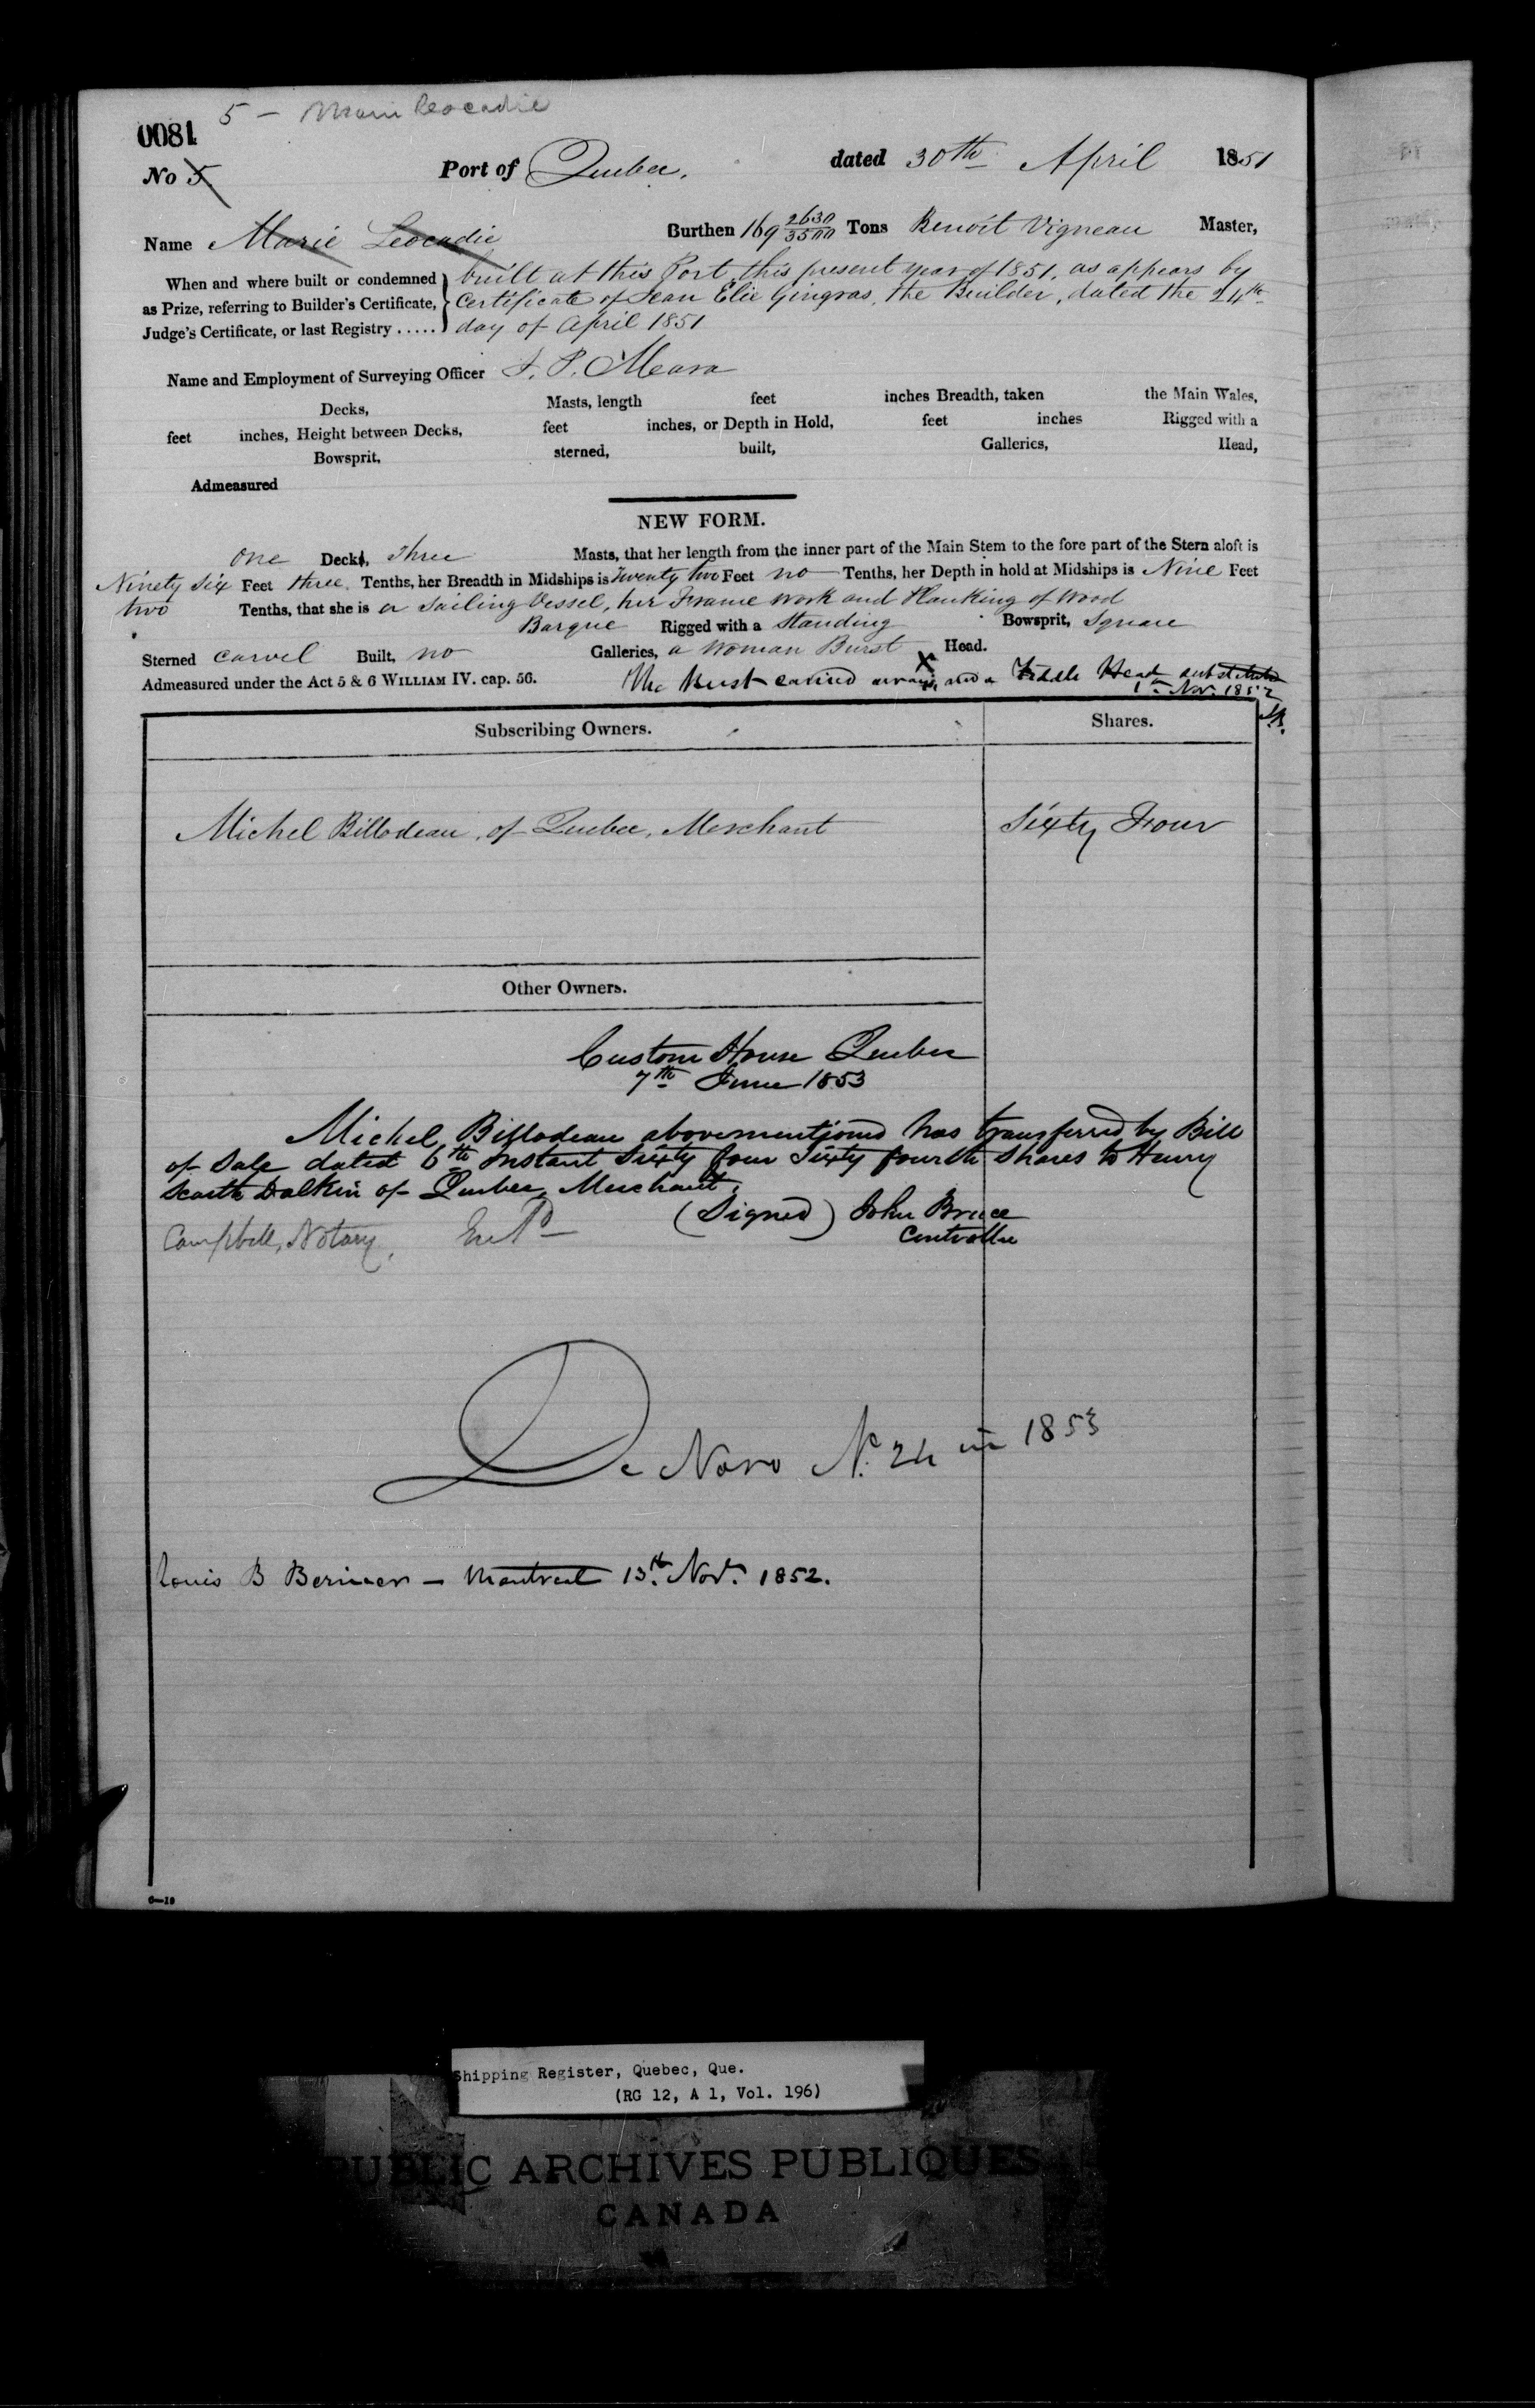 5 - Marie Leocadie
0081
No 5 Port of Quebec. dated 30th April 1851
Name Marie Leocadie Burthen 169 2630/3500 Tons Benoit Vigneau Master,
When and where built or condemned built at this Port this present year of 1851. as appears by
as Prize, referring to Builder's Certificate, Certificate of Jean Elie Gingras, the Builder, dated the 24th
Judge's Certificate, or last Registry ..... day of April 1851
Name and Employment of Surveying Officer J. P. Meara
Decks, Masts, length feet inches Breadth, taken the Main Wales,
feet inches, Height between Decks, feet inches, or Depth in Hold, feet inches Rigged with a
Bowsprit, sterned, built, Galleries, Head,
Admeasured
NEW FORM.
One Decks, Three Masts, that her length from the inner part of the Main Stem to the fore part of the Stern aloft is
Ninety Six Feet three Tenths, her Breadth in Midships is Twenty two Feet no Tenths, her Depth in hold at Midships is Nine Feet
two Tenths, that she is a Sailing Vessel, her Frame work and Planking of Wood
Barque Rigged with a Standing Bowsprit, Square
Sterned Carvel Built, no Galleries, a Woman Burst Head.
Admeasured under the Act 5 & 6 WILLIAM IV. cap. 56. The Bust carried away, and a Fiddle Head substituted
1st Nov. 1852
Subscribing Owners. Shares.
Michel Billodeau, of Quebec, Merchant Sixty Four
Other Owners.
Custom House Quebec
7th June 1853
Michel Billodeau abovementioned has transferred by Bill
of Sale dated 6th Instant Sixty four Sixty fourth Shares to Henry
Scarth Dalkin of Quebec, Merchant.
(Signed) John Bruce
Campbell, Notary, Controller
De Novo No. 24 in 1853
Louis B Bernier - Montreal 13th Nov. 1852.
6-19
Shipping Register, Quebec, Que.
(RG 12, A 1, Vol. 196)
PUBLIC ARCHIVES PUBLIQUES
CANADA